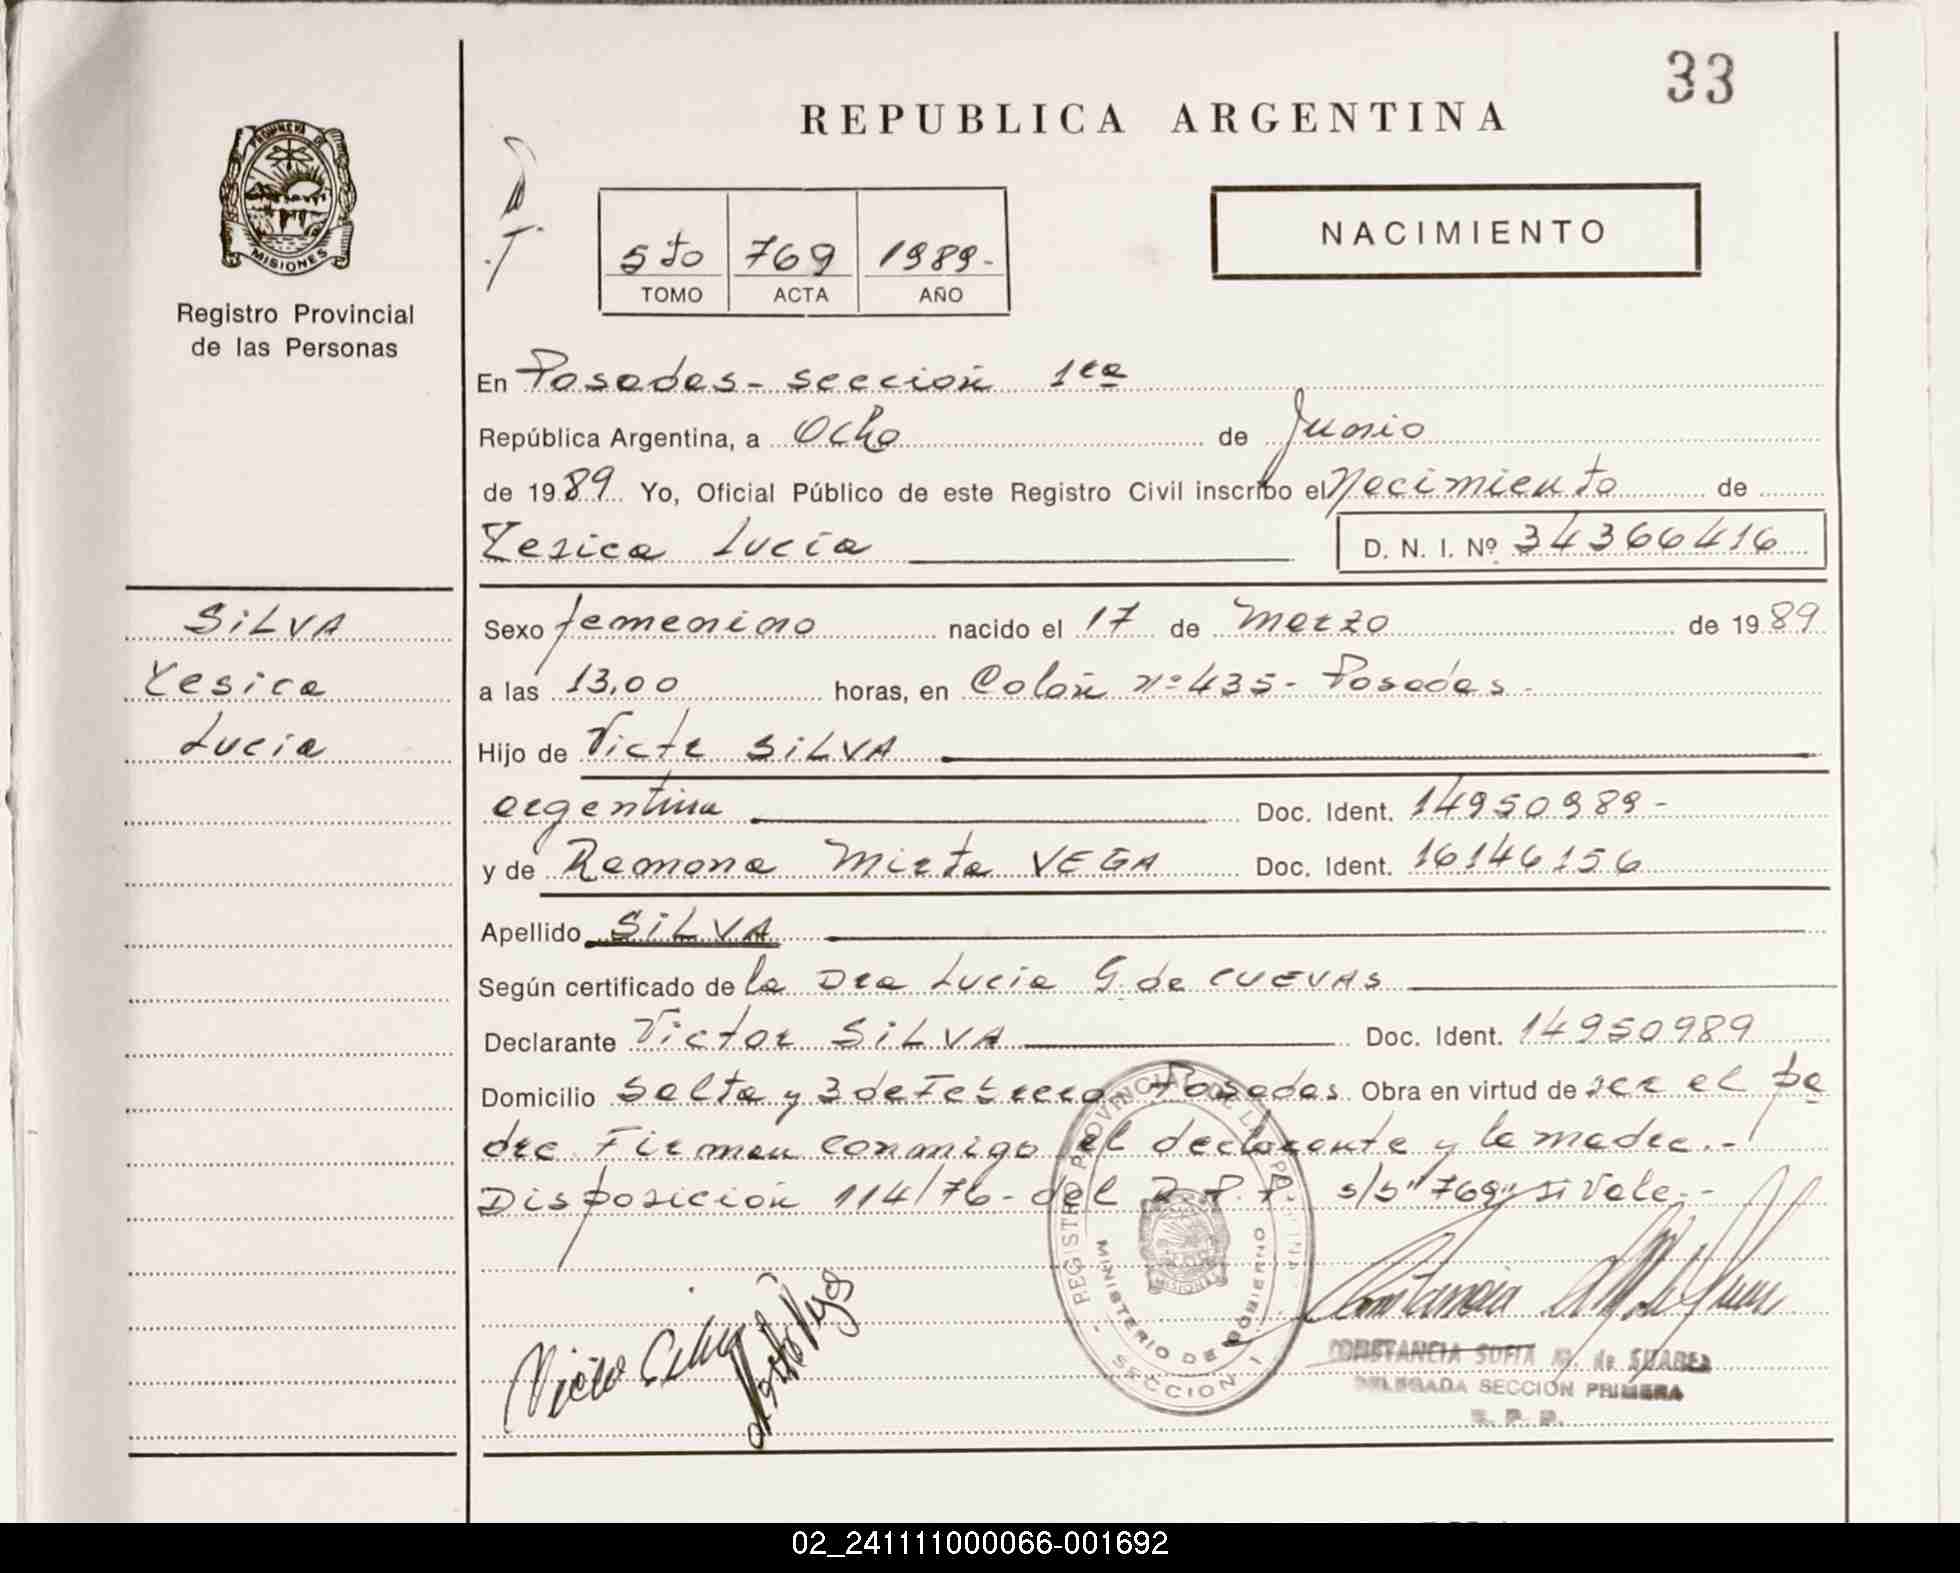 33
REPUBLICA ARGENTINA
PROVINCIA DE
MISIONES
Registro Provincial
de las Personas
5to 769 1989.-
TOMO ACTA AÑO
NACIMIENTO
En Posadas - sección 1ra
República Argentina, a Ocho de Junio
de 1989 Yo, Oficial Público de este Registro Civil inscribo el Nacimiento de
Yesica Lucía D. N. I. Nº 34366416
SILVA
Yesica
Lucia
Sexo femenino nacido el 17 de Marzo de 1989
a las 13,00 horas, en Colón nº 435 - Posadas.
Hijo de Victr SILVA
argentina Doc. Ident. 14950989-
y de Ramona Mirta VEGA Doc. Ident. 16146156
Apellido SILVA
Según certificado de la Dra Lucia G. de CUEVAS
Declarante Victor SILVA Doc. Ident. 14950989
Domicilio Salta y 3 de Febrero Posadas. Obra en virtud de ser el pa
dre Firman conmigo el declarante y la madre.-
Disposición 114/76- del R.P.P. s/b "769" si Vale.-
REGISTRO PROVINCIAL DE
MINISTERIO DE GOBIERNO
- SECCION I -
MISIONES
CONSTANCIA SOFIA M. de SUAREZ
DELEGADA SECCION PRIMERA
R. P. P.
02_241111000066-001692